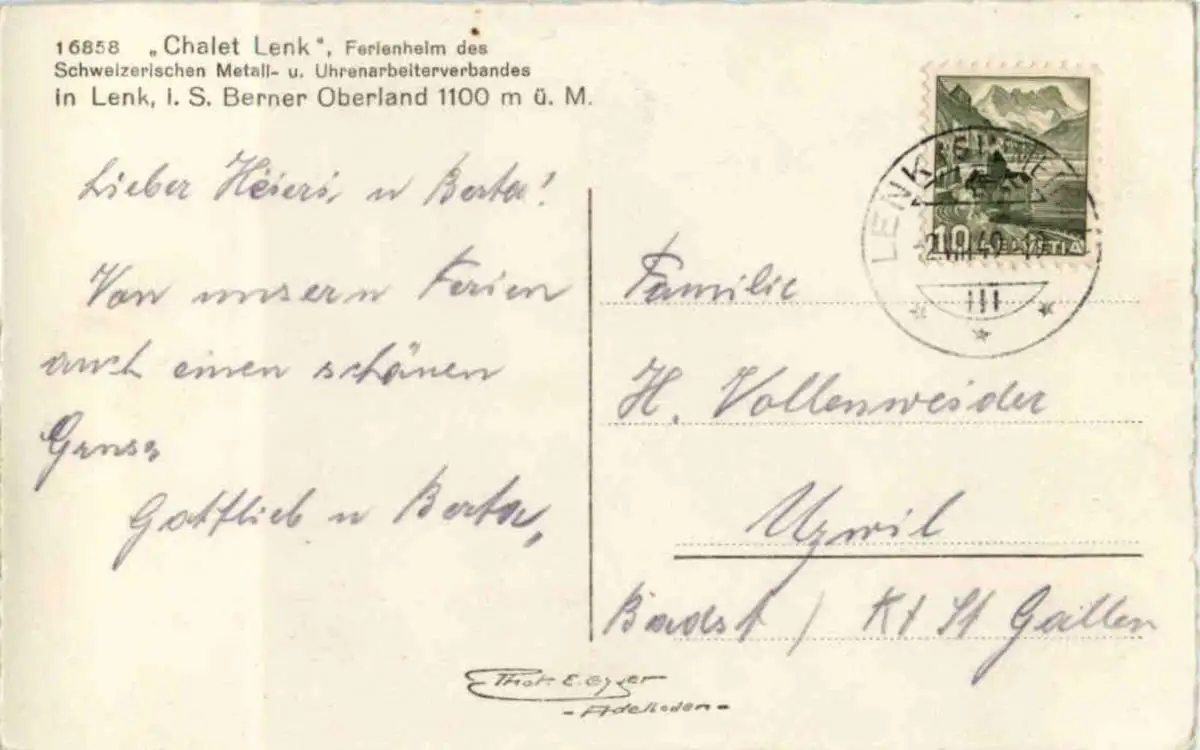 16858 „Chalet Lenk", Ferienheim des
Schweizerischen Metall- u. Uhrenarbeiterverbandes
in Lenk, i. S. Berner Oberland 1100 m ü. M.
Lieber Heieri u Berta!
Von unsern Ferien
auch einen schönen
Gruss
Gottlieb u Berta,,
10 HELVETIA
LENK
III
Familie
H. Vollenweider
Uzwil
Badst / Kt St Gallen
Phot. E. Gyger
- Adelboden -